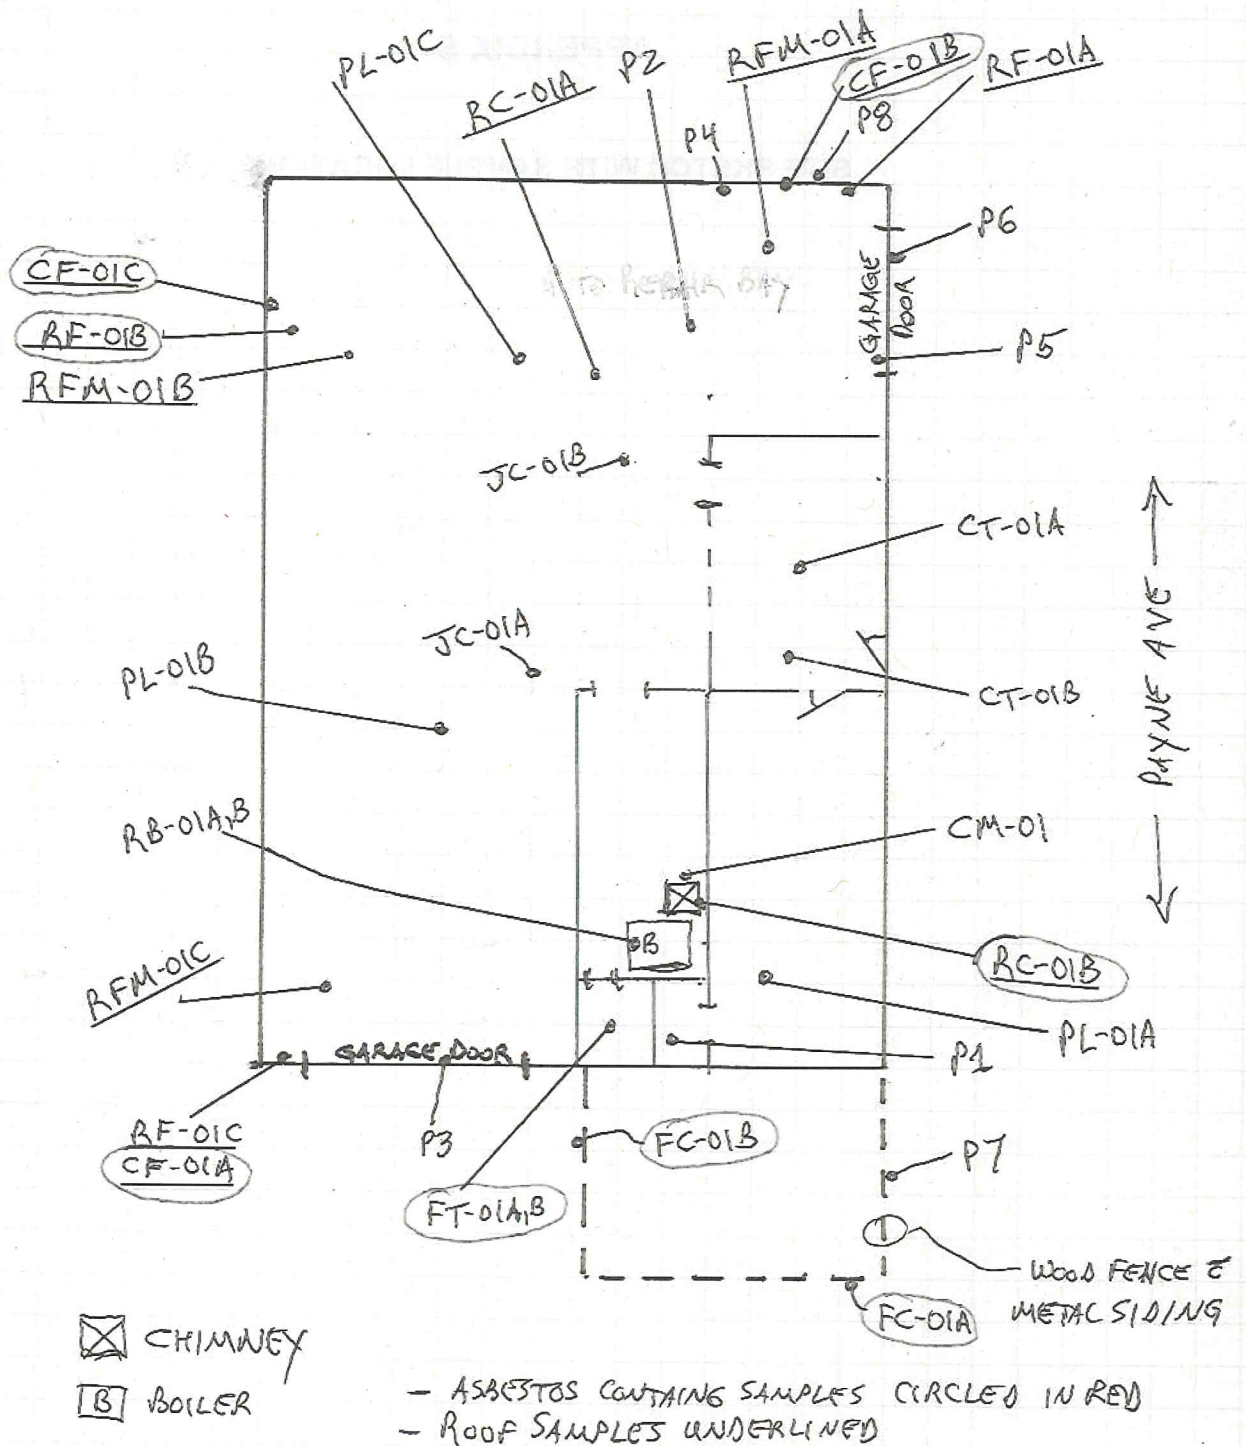 PL-01C
RC-01A
P2
RFM-01A
CF-01B
RF-01A
P4
P8
P6
CF-01C
RF-01B
RFM-01B
GARAGE
DOOR
P5
* TO REPAIR BAY
JC-01B
CT-01A
JC-01A
PL-01B
CT-01B
PAYNE AVE
RB-01A,B
CM-01
B
RC-01B
RFM-01C
PL-01A
GARAGE DOOR
P1
RF-01C
CF-01A
P3
FC-01B
P7
FT-01A,B
WOOD FENCE c̄
METAL SIDING
FC-01A
CHIMNEY
B BOILER
- ASBESTOS CONTAING SAMPLES CIRCLED IN RED
- ROOF SAMPLES UNDERLINED